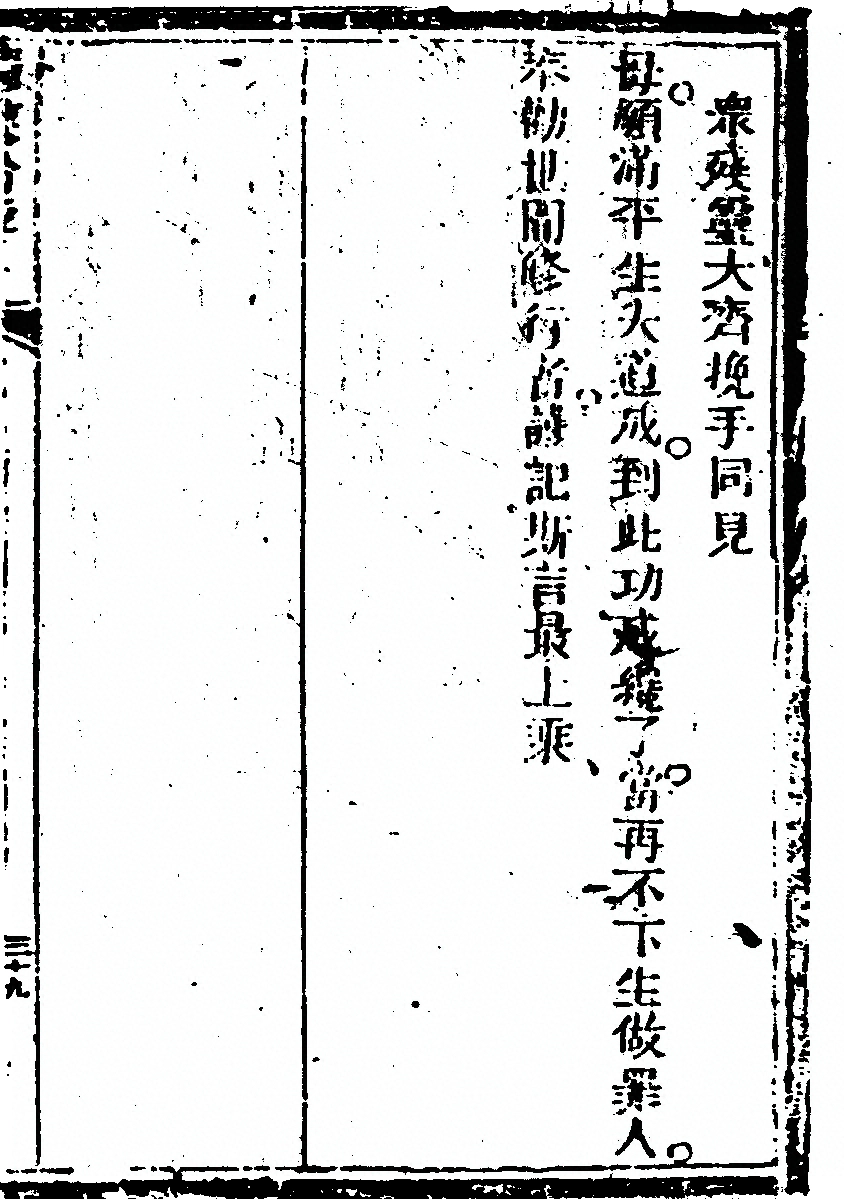 眾殘靈大齊挽手同見
母願滿平生大道成到此功成纔了當再不下生做罪人
奉勸世間修行者謹記斯言最上乘
三十九